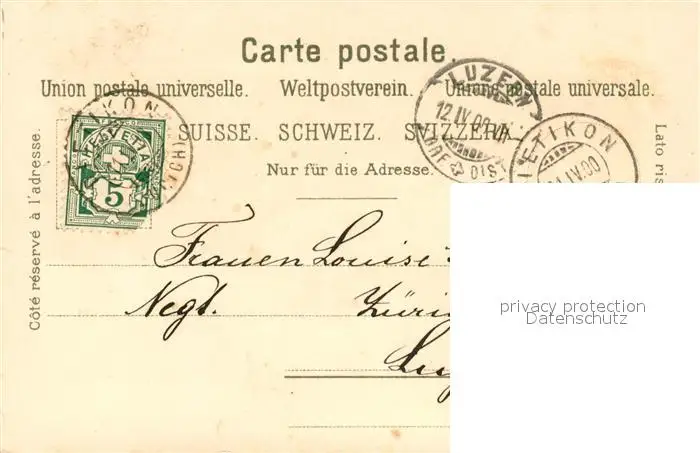 Carte postale.
Union postale universelle. Weltpostverein. Unione postale universale.
SUISSE. SCHWEIZ. SVIZZERA.
Nur für die Adresse.
Côté réservé à l'adresse.
Lato ris
HELVETIA
5
LUZERN
12.IV.00
BRF. DIST.
ETIKON
IV.00
Frauen Louise
Negt. Züri
Lu
privacy protection
Datenschutz